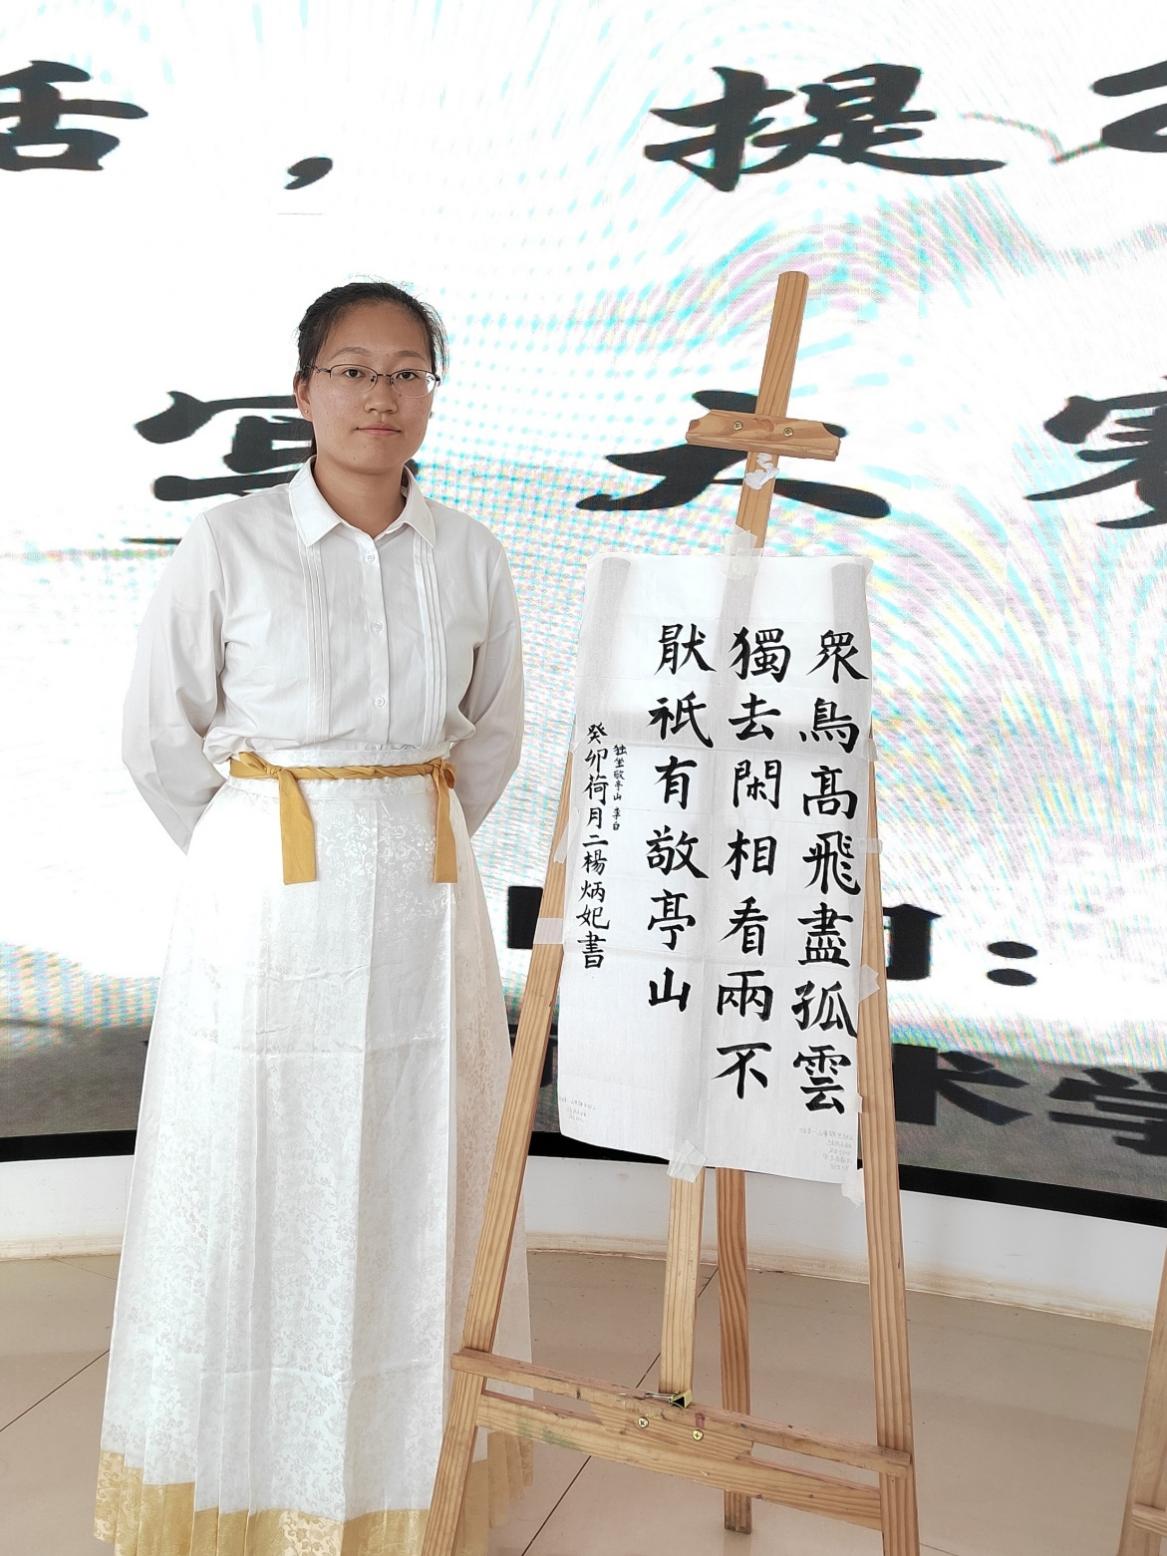 活，提
写大赛
:
术学
衆鳥高飛盡孤雲
獨去閑相看兩不
猒祇有敬亭山
独坐敬亭山 李白
癸卯荷月二楊炳妃書